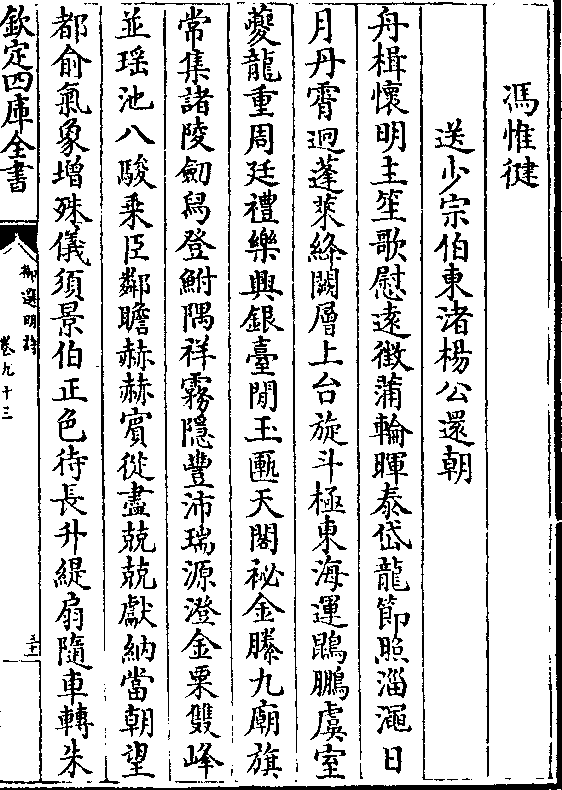 馮惟健
送少宗伯東渚楊公還朝
舟楫懷明主笙歌慰遠徴蒲輪暉泰岱龍節照淄澠日
月丹霄迥蓬萊絳闕層上台旋斗極東海運鵾鵬虞室
夔龍重周廷禮樂興銀臺閒玉匭天閣祕金縢九廟旗
常集諸陵劒舄登鮒隅祥霧隱豐沛瑞源澄金粟雙峰
並瑶池八駿乗臣鄰瞻赫赫賓從盡兢兢獻納當朝望
都俞氣象增殊儀須景伯正色待長升緹扇隨車轉朱
欽定四庫全書
御選明詩
卷九十三